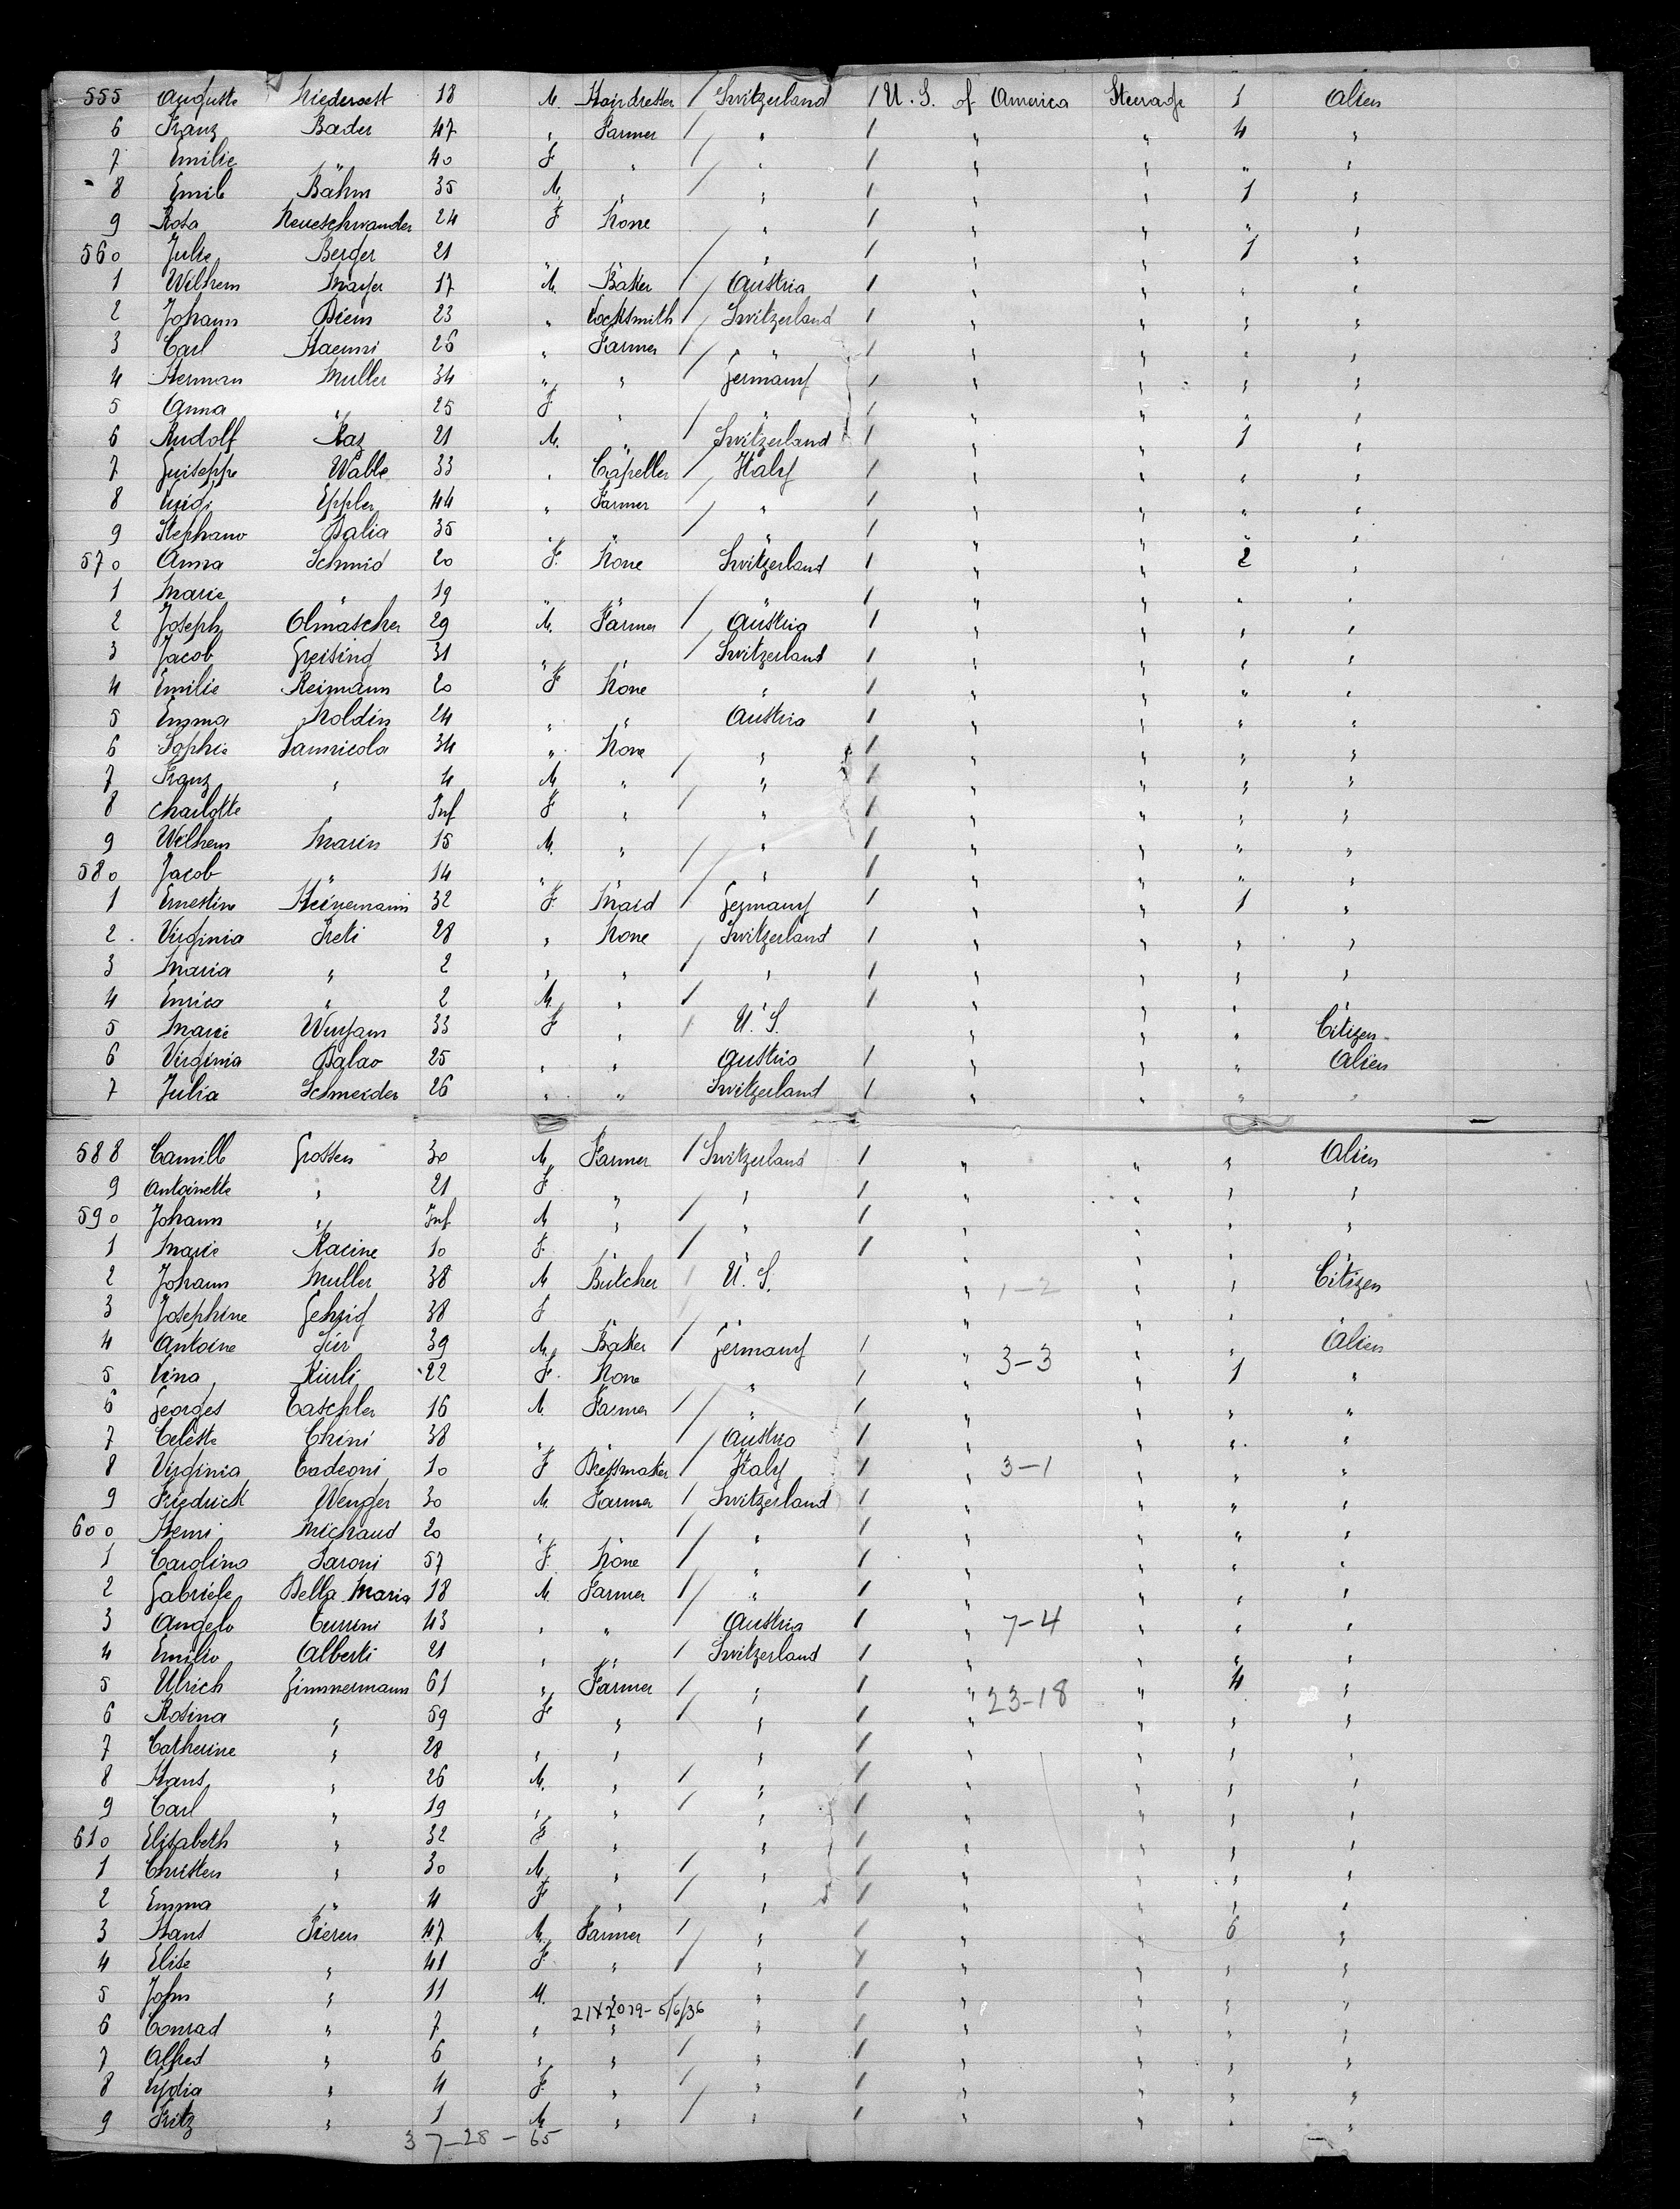 555 Auguste Niederoest 18 M. Hairdresser / Switzerland / U. S. of America Steerage 1 Alien
6 Franz Bader 47 " Farmer / " / " " 4 "
7 Emilie " 40 F " / " / " " " "
8 Emile Böhm 35 M. " / " / " " 1 "
9 Rosa Neueschwander 24 F None " / " " " "
560 Julie Berger 21 " " / " / " " 1 "
1 Wilhem Mayer 17 M. Baker / Austria / " " " "
2 Johann Diem 23 " Locksmith / Switzerland / " " " "
3 Carl Haenni 26 " Farmer / " " / " " " "
4 Herman Muller 34 " " / Germany / " " " "
5 Anna " 25 F " / " / " " " "
6 Rudolf Kaz 21 M. " / Switzerland / " " 1 "
7 Guiseppe Walle 33 " Capeller / Italy / " " " "
8 Luigi Eppler 44 " Farmer / " / " " " "
9 Stephano Dalia 35 " " / " / " " " "
570 Anna Schmid 20 F. None Switzerland / " " 2 "
1 Marie " 19 " " " / " " " "
2 Joseph Olmascher 29 M. Farmer / Austria / " " " "
3 Jacob Greising 31 " " / Switzerland / " " " "
4 Emilie Reimann 20 F None " / " " " "
5 Emma Noldin 24 " " Austria / " " " "
6 Sophie Sannicola 34 " None " / " " " "
7 Franz " 4 M " / " / " " " "
8 Charlotte " Inf F " / " / " " " "
9 Wilhem Marin 15 M. " / " / " " " "
580 Jacob " 14 " " / " / " " " "
1 Ernestine Heinemann 32 F. Maid / Germany / " " 1 "
2 Virginia Preti 28 " None / Switzerland / " " " "
3 Maria " 2 " " / " / " " " "
4 Enrico " 2 M. " / " / " " "
5 Marie 33 F " / U. S. " " " Citizen
6 Virginia Dalao 25 " " Austria / " " " Alien
7 Julia Schneider 26 " " Switzerland / " " " "
588 Camille Grossen 30 M Farmer / Switzerland / " " " Alien
9 Antoinette " 21 F " / " / " " " "
590 Johann " Inf M " / " / " " " "
1 Marie Racine 10 F. " / " / " " "
2 Johann Muller 38 M Butcher / U. S. " 1-2 " " Citizen
3 Josephine Gehrig 38 F " " "
4 Antoine Für 39 M. Baker / Germany / " 3-3 " " Alien
5 Lina Kurli 22 F None " / " " 1 "
6 Georges Taschler 16 M. Farmer / " / " " " "
7 Celeste Chini 38 " " / Austria / " " " "
8 Virginia Cadeoni 10 F Dressmaker / Italy / " 3-1 " " "
9 Friedrick Wenger 30 M Farmer / Switzerland / " " " "
600 Henri Michaud 20 " " / " / " " " "
1 Carolina Saroni 57 F. None / " / " " " "
2 Gabriele Della Maria 18 M. Farmer / " / " " " "
3 Angelo Turrini 43 " " / Austria / " 7-4 " " "
4 Emilio Alberti 21 " " / Switzerland / " " " "
5 Ulrich Zimmermann 61 " Farmer / " / " 23-18 " 4 "
6 Rosina " 59 F " / " / " " " "
7 Catherine " 28 " " " / " " " "
8 Hans " 26 M. " / " / " " " "
9 Carl " 19 " " / " / " " " "
610 Elisabeth " 32 F " " / " " " "
1 Christen " 30 M. " / " / " " " "
2 Emma " 4 F " / " / " " " "
3 Hans Pieren 47 M. Farmer / " / " " 6 "
4 Elise " 41 F. " / " / " " " "
5 John " 11 M. " " / " " " "
21X2019-5/6/36
6 Conrad " 7 " " " / " " " "
7 Alfred " 6 " " / " / " " " "
8 Lydia " 4 F. " / " / " " " "
9 Fritz " 1 M " / " / " " " "
37-28-65